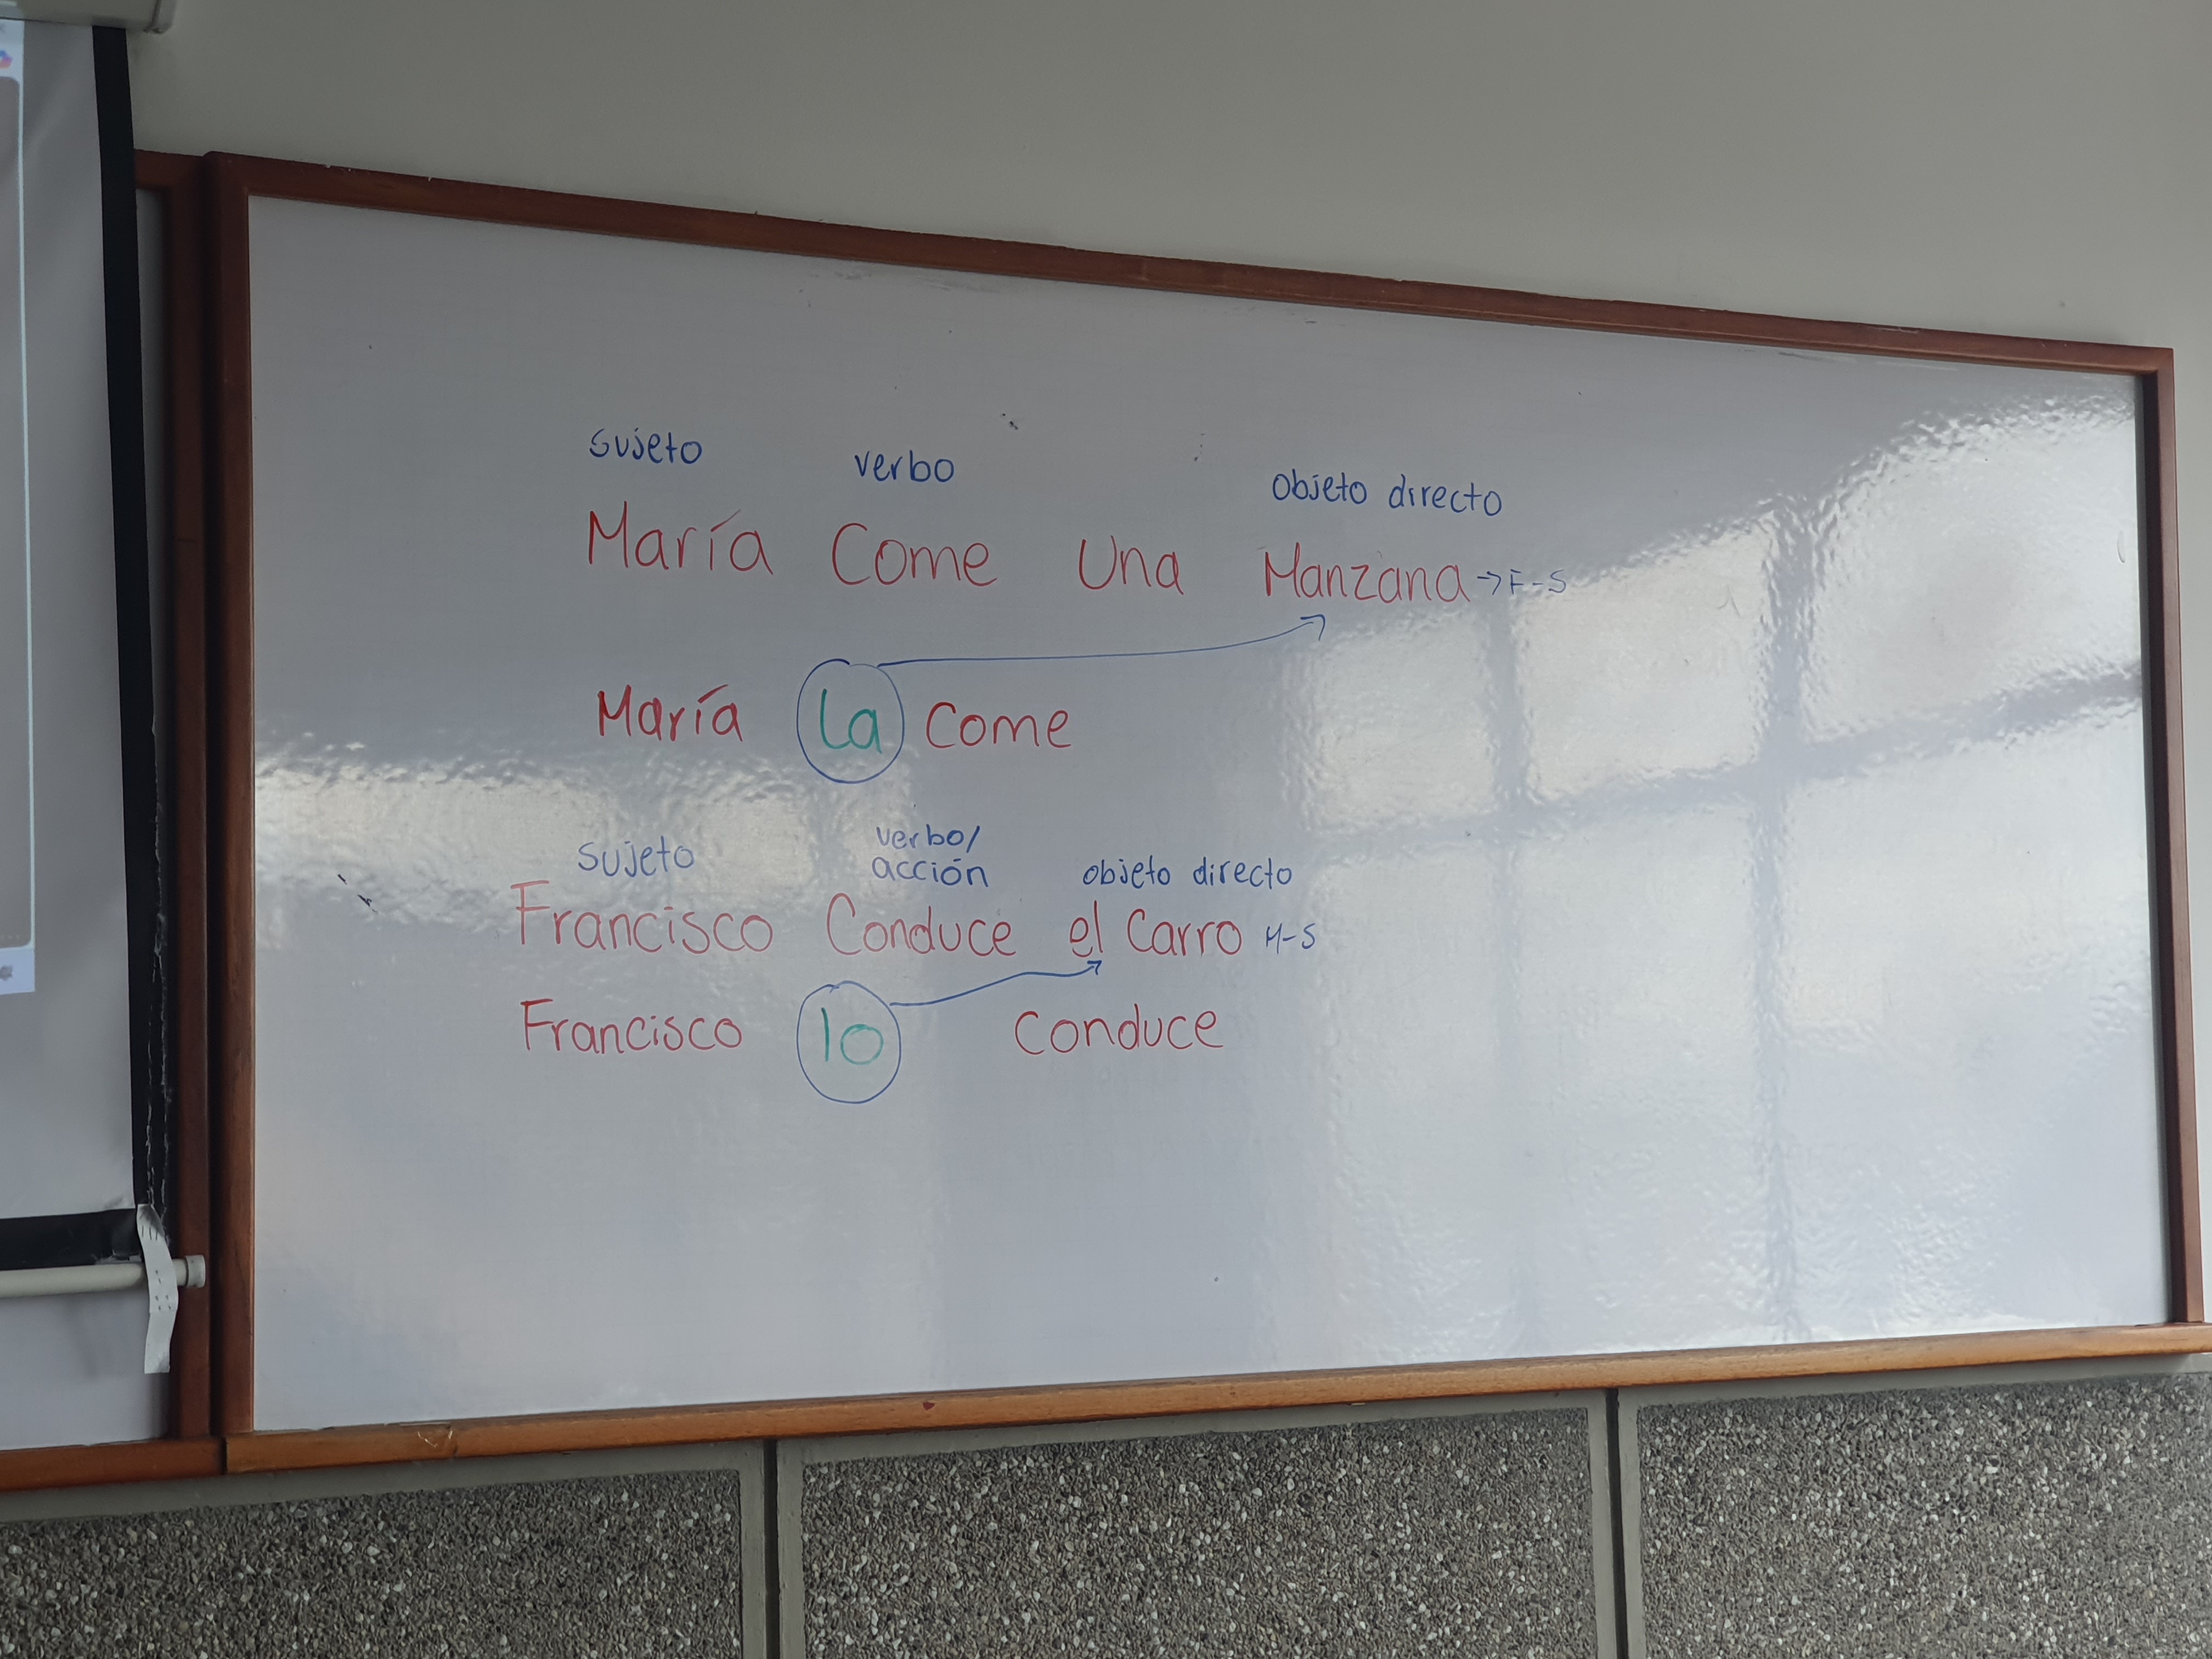 sujeto verbo objeto directo
María Come Una Manzana → F-S
María la come
sujeto verbo/
acción objeto directo
Francisco Conduce el Carro M-S
Francisco lo conduce